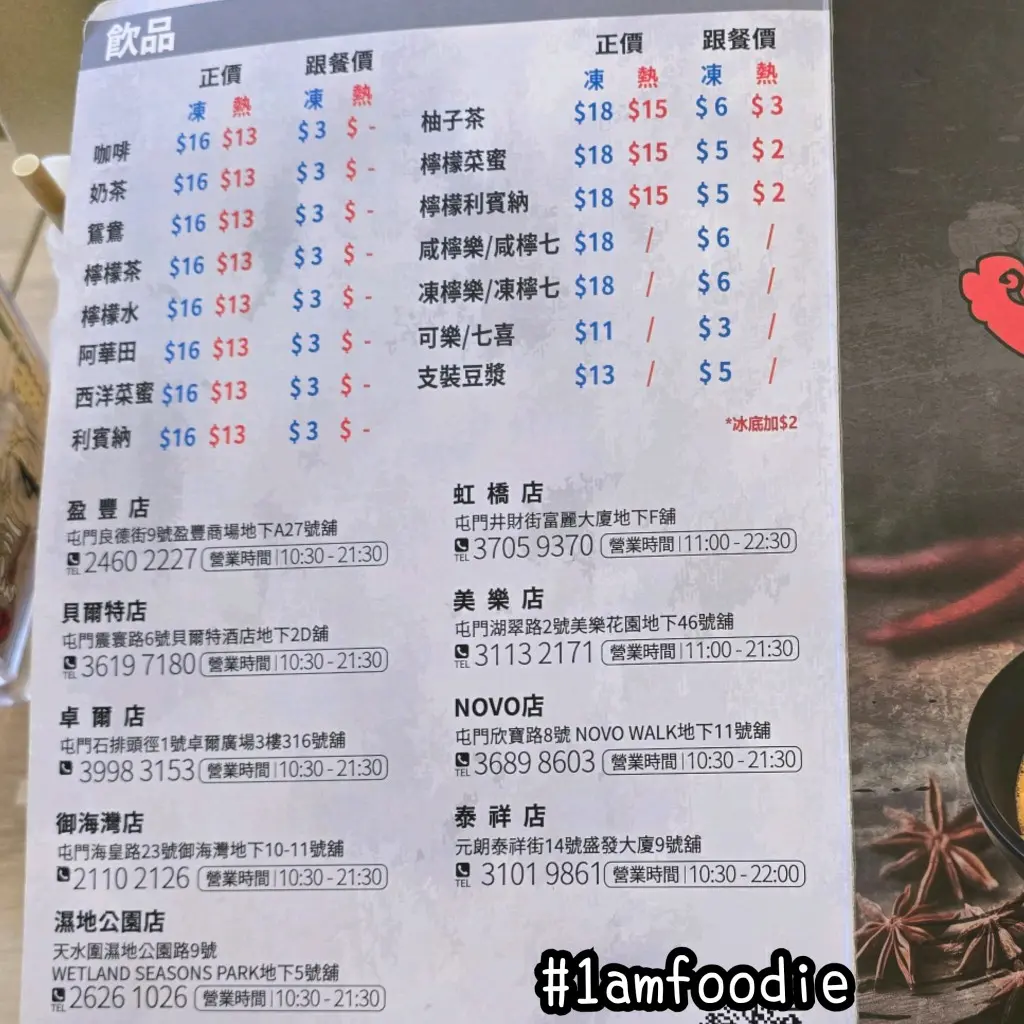 飲品
正價 跟餐價
凍 熱 凍 熱
咖啡 $16 $13 $3 $ -
奶茶 $16 $13 $3 $ -
鴛鴦 $16 $13 $3 $ -
檸檬茶 $16 $13 $3 $ -
檸檬水 $16 $13 $3 $ -
阿華田 $16 $13 $3 $ -
西洋菜蜜 $16 $13 $3 $ -
利賓納 $16 $13 $3 $ -
正價 跟餐價
凍 熱 凍 熱
柚子茶 $18 $15 $6 $3
檸檬菜蜜 $18 $15 $5 $2
檸檬利賓納 $18 $15 $5 $2
咸檸樂/咸檸七 $18 / $6 /
凍檸樂/凍檸七 $18 / $6 /
可樂/七喜 $11 / $3 /
支裝豆漿 $13 / $5 /
*冰底加$2
盈豐店
屯門良德街9號盈豐商場地下A27號舖
TEL 2460 2227 營業時間|10:30 - 21:30
貝爾特店
屯門震寰路6號貝爾特酒店地下2D舖
TEL 3619 7180 營業時間|10:30 - 21:30
卓爾店
屯門石排頭徑1號卓爾廣場3樓316號舖
3998 3153 營業時間|10:30 - 21:30
御海灣店
屯門海皇路23號御海灣地下10-11號舖
2110 2126 營業時間|10:30 - 21:30
濕地公園店
天水圍濕地公園路9號
WETLAND SEASONS PARK地下5號舖
TEL 2626 1026 營業時間|10:30 - 21:30
虹橋店
屯門井財街富麗大廈地下F舖
TEL 3705 9370 營業時間|11:00 - 22:30
美樂店
屯門湖翠路2號美樂花園地下46號舖
TEL 3113 2171 營業時間|11:00 - 21:30
NOVO店
屯門欣寶路8號 NOVO WALK地下11號舖
TEL 3689 8603 營業時間|10:30 - 21:30
泰祥店
元朗泰祥街14號盛發大廈9號舖
TEL 3101 9861 營業時間|10:30 - 22:00
#1amfoodie